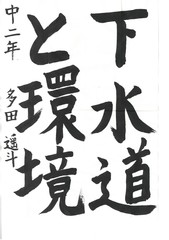 下水道
と環境
中二年 多田 遥斗